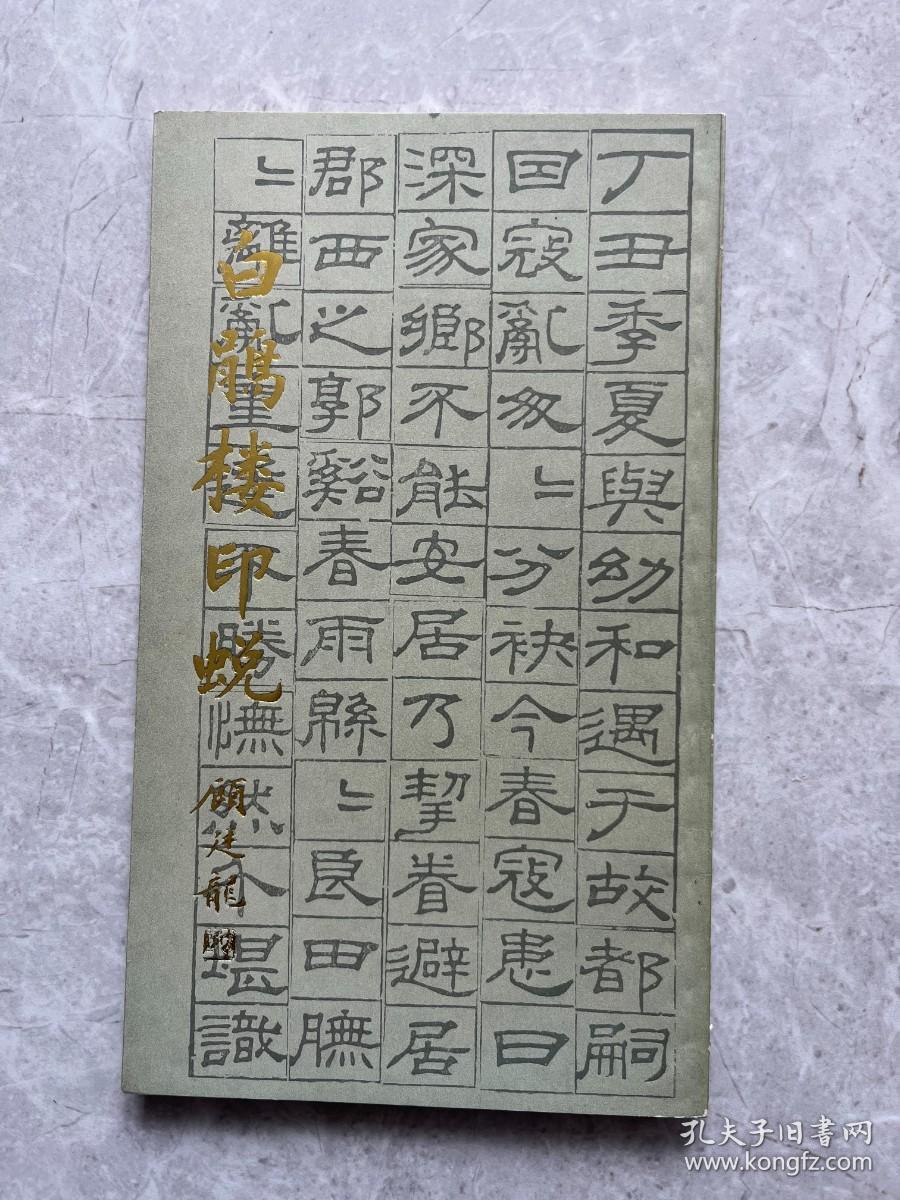 丁丑季夏與幼和遇于故都嗣
因寇亂匆〻分袂今春寇患日
深家鄉不能安居乃挈眷避居
郡西之郭谿春雨緜〻良田膴
〻離亂里勝憮然介堪識
白鵑楼印蜕
顧廷龍
孔夫子旧書网
www.kongfz.com